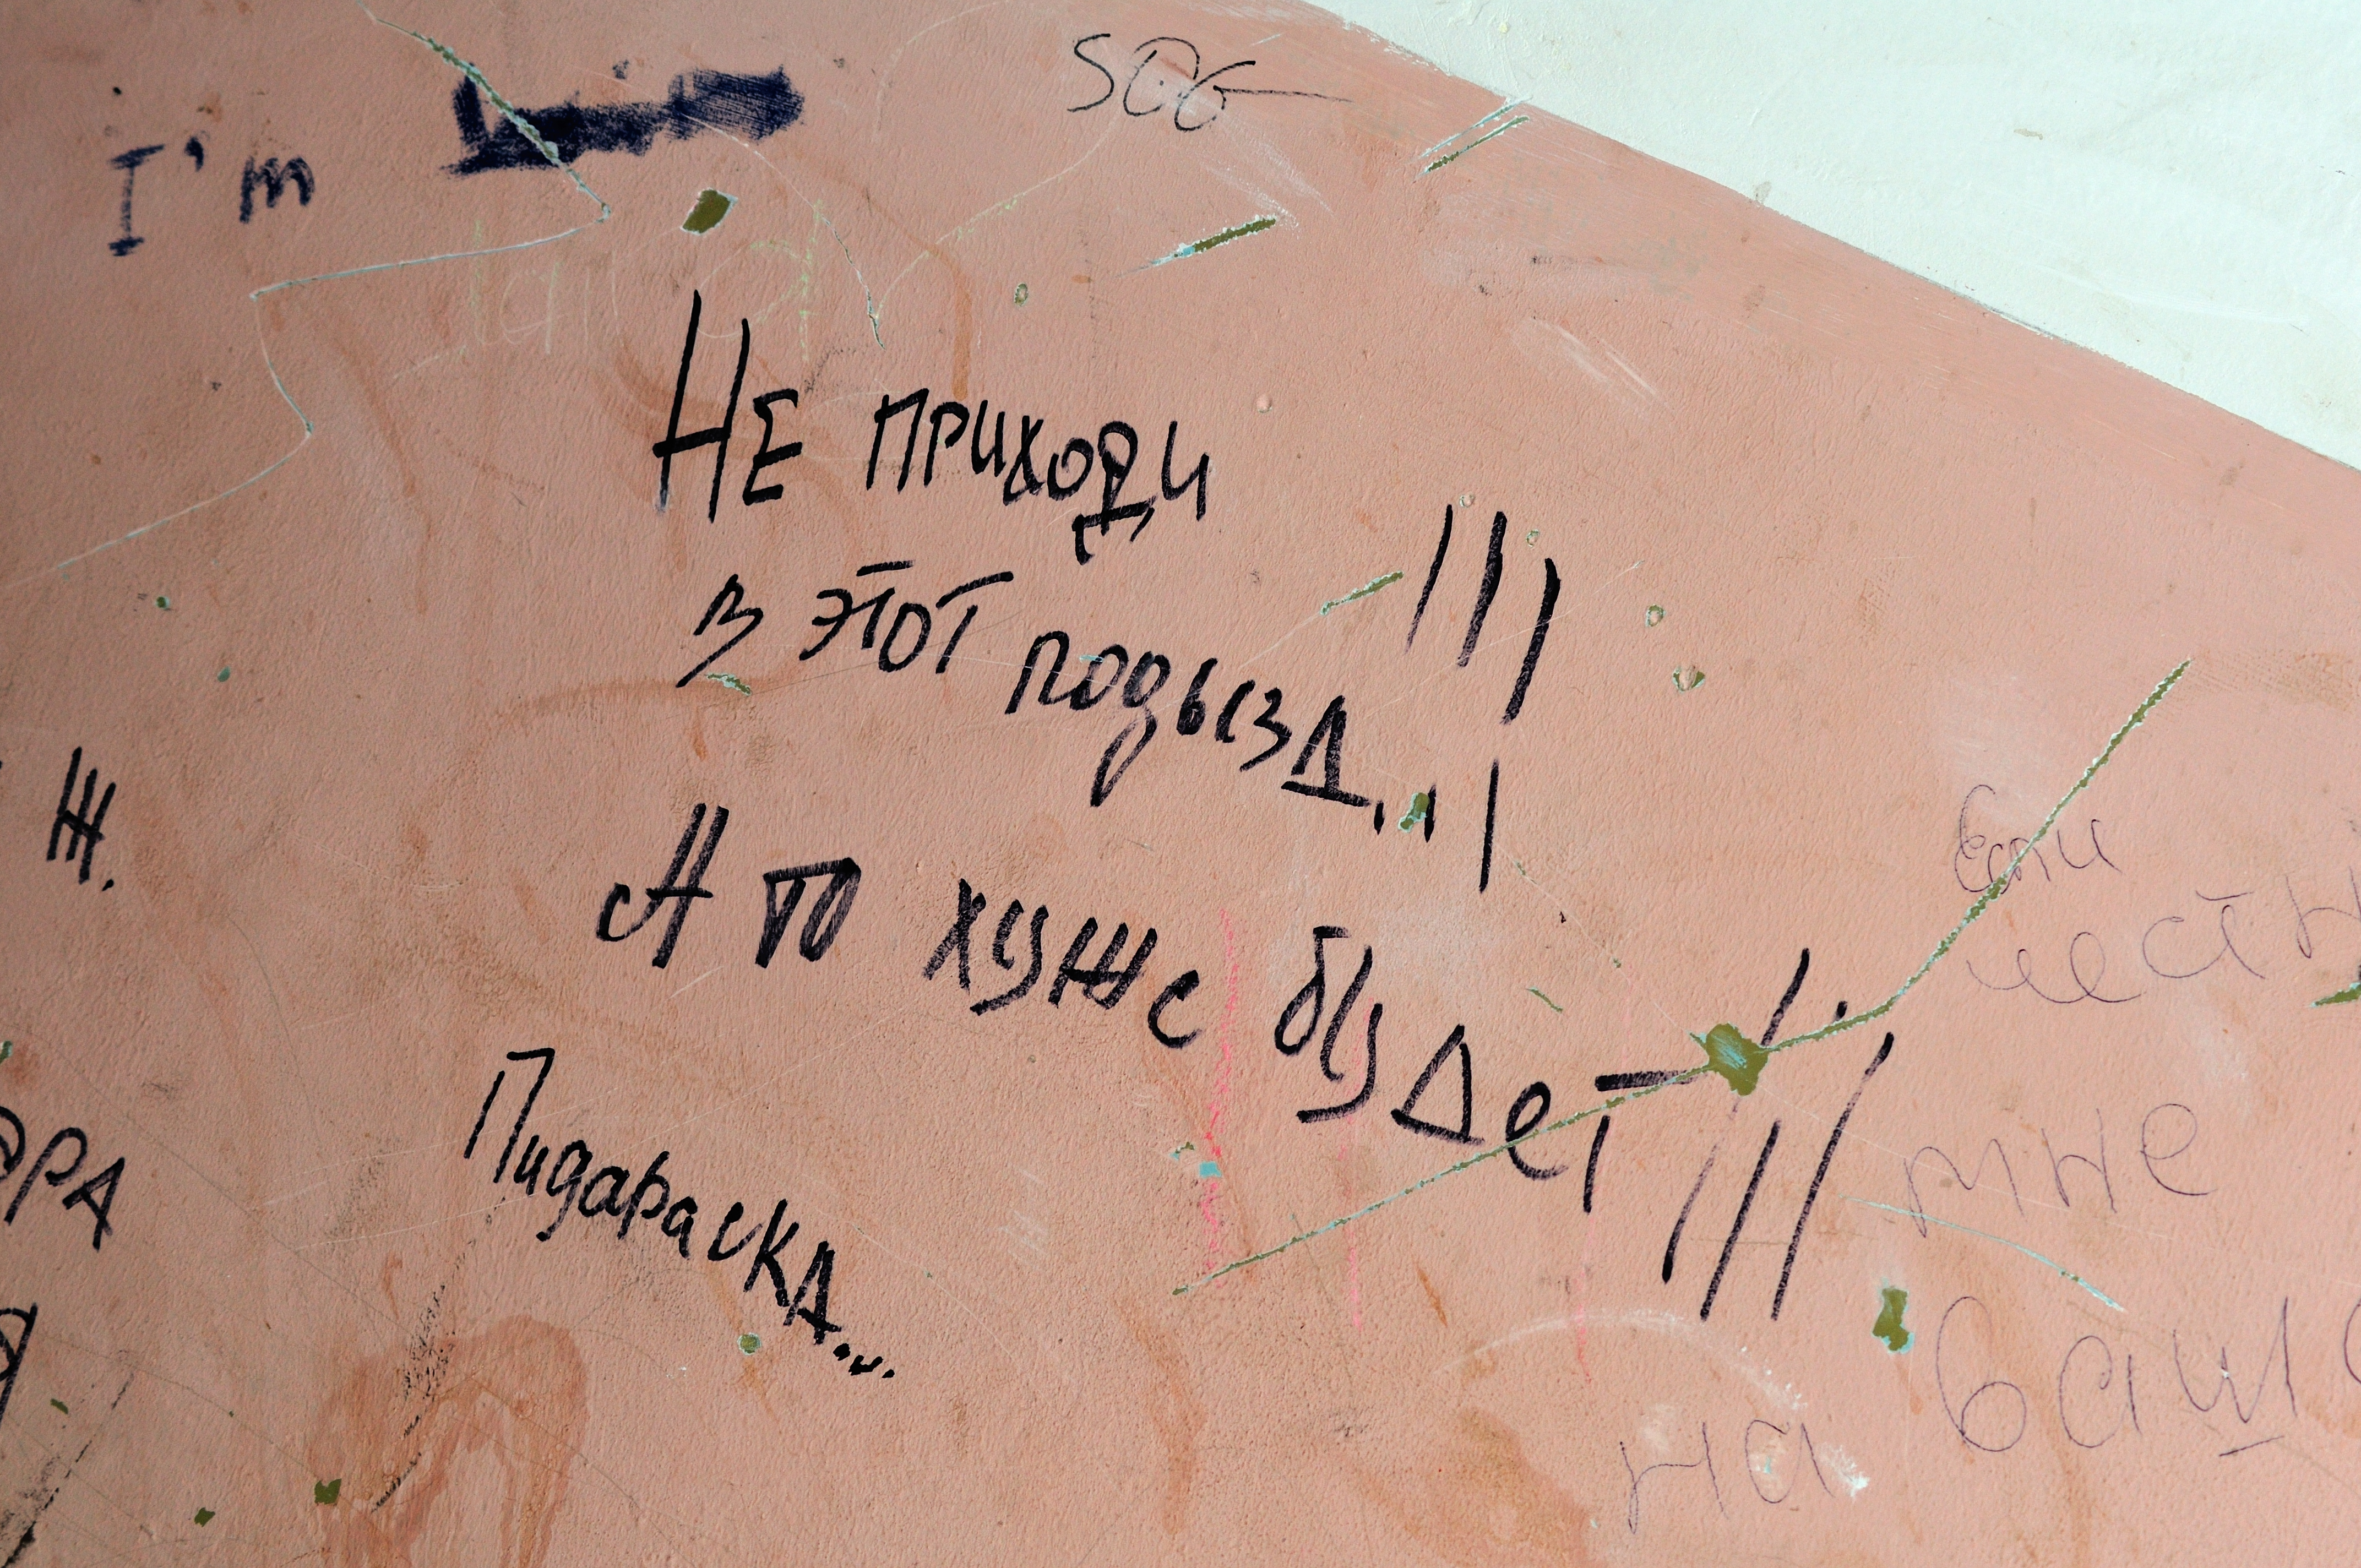 I'm
SOG
НЕ ПРИХОДИ
В ЭТОТ ПОДЫЗД...!!!!
А ТО ХУЖЕ БУДЕТ!!!
ПИДАРАСКА...
Ж.
ЭРА
Если
честн
мне
на ваш